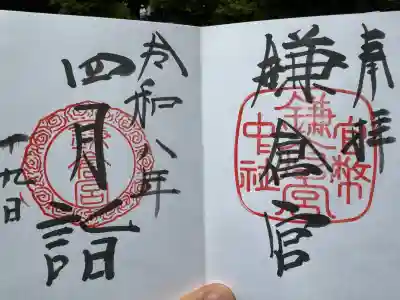 奉拝
鎌倉宮
官幣
中社
鎌倉宮
令和八年
四月詣
十九日
鎌倉宮